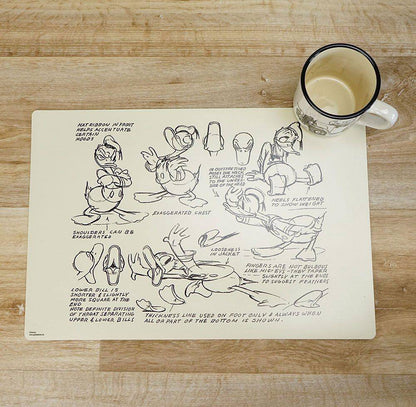 HAT RIBBON IN FRONT
HELPS ACCENTUATE
CERTAIN
MOODS
IN OUTSTRETCHED
STILL ATTACHES
TO THE UNDER
SIDE OF THE HEAD
HEELS FLATTENED
TO SHOW WEIGHT.
EXAGGERATED CHEST
SHOULDERS CAN BE
EXAGGERATED
LOOSENESS
IN JACKET
FINGERS ARE NOT BULBOUS
LIKE MICKEYS - THEY TAPER
SLIGHTLY AT THE END
TO SUGGEST FEATHERS
LOWER BILL IS
SHORTER & SLIGHTLY
MORE SQUARE AT THE
END
NOTE DEFINITE DIVISION
OF THROAT SEPARATING
UPPER & LOWER BILLS
THICKNESS LINE USED ON FOOT ONLY & ALWAYS WHEN
ALL OR PART OF THE BOTTOM IS SHOWN.